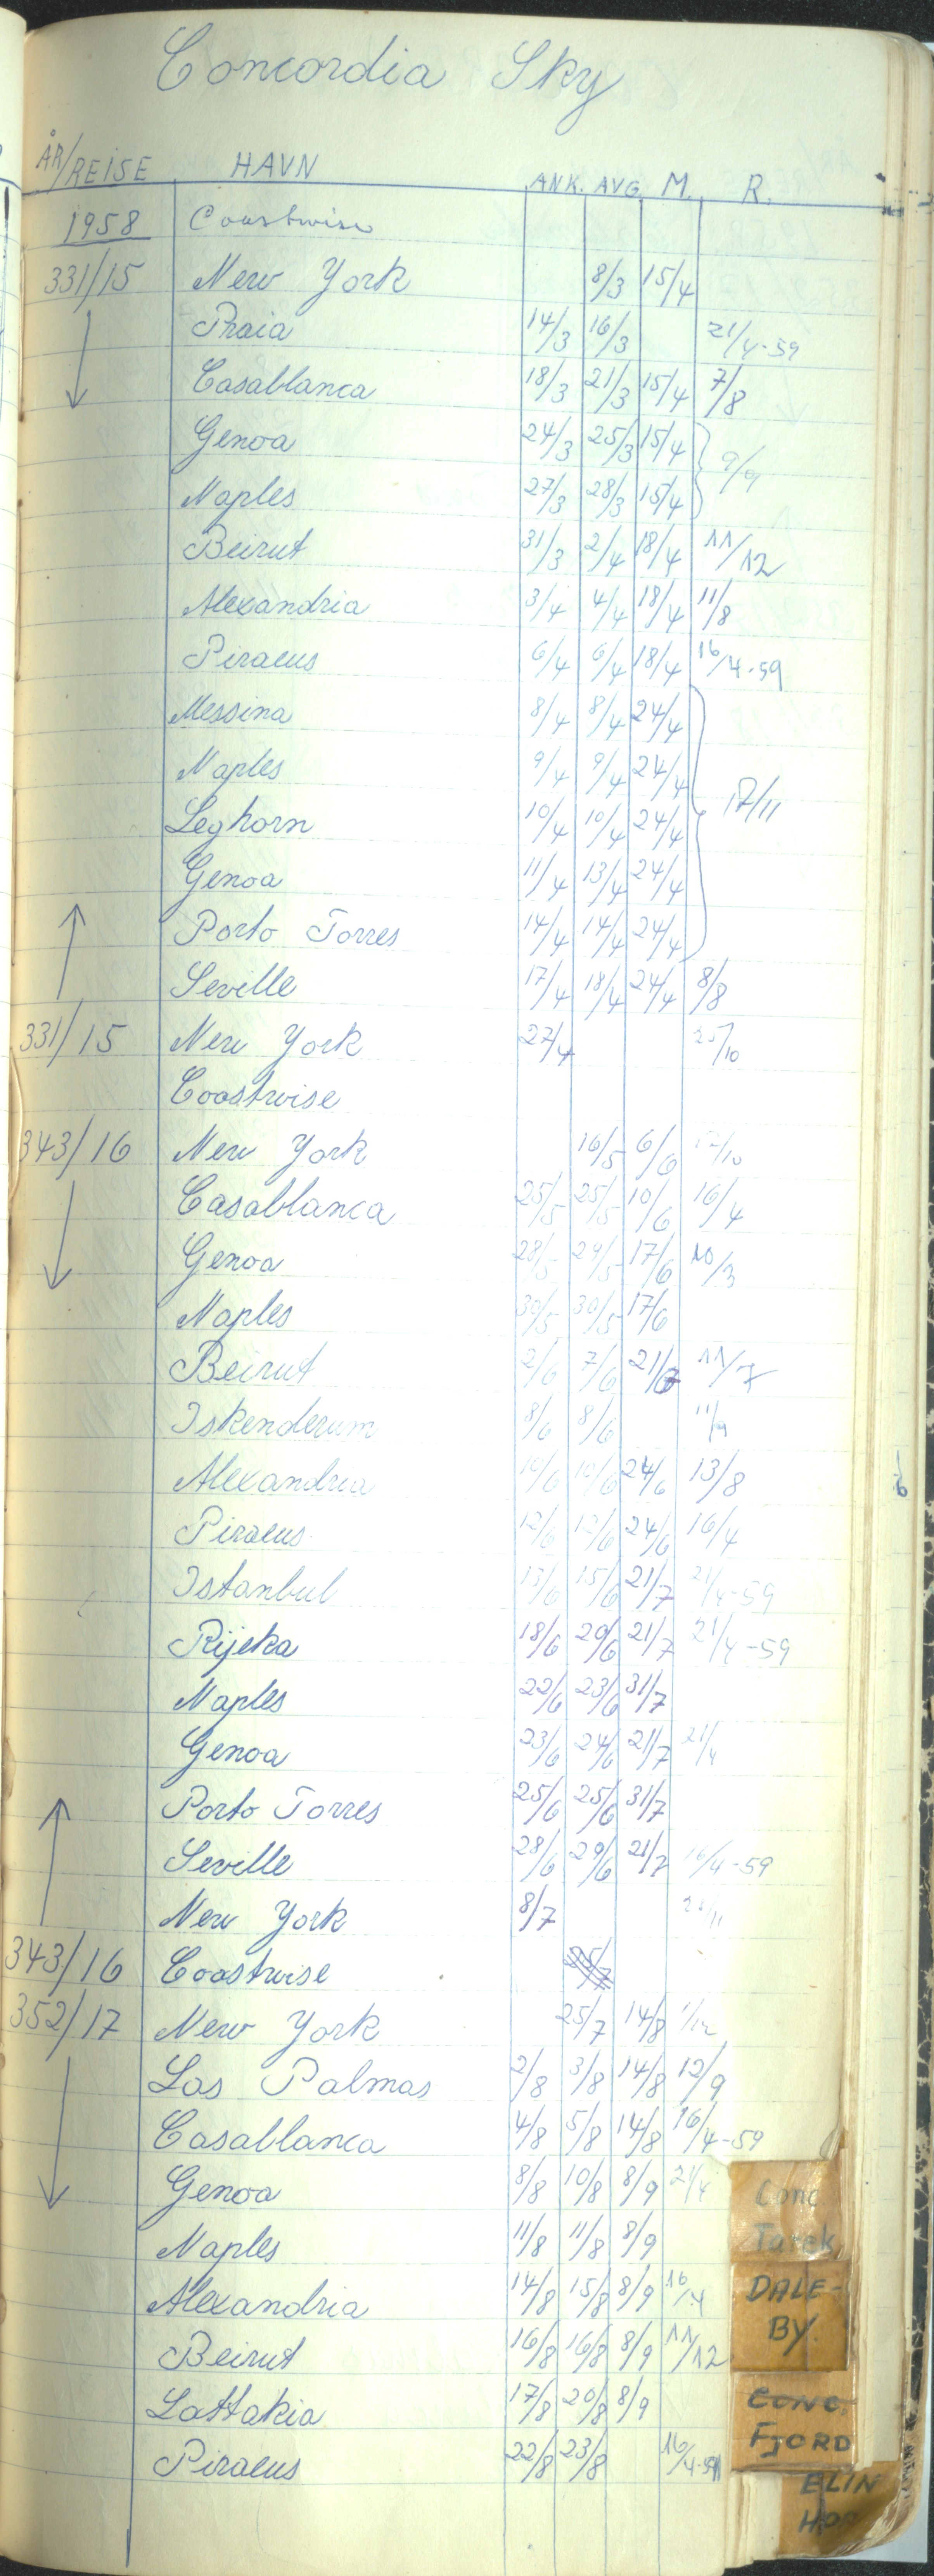 Concordia Sky
ÅR/REISE HAVN ANK. AVG. M. R.
1958 Coastwise
331/15 New York 8/3 15/4
Praia 14/3 16/3 21/4-59
Casablanca 18/3 21/3 15/4 7/8
Genoa 24/3 25/3 15/4 9/9
Naples 27/3 28/3 15/4
Beirut 31/3 2/4 18/4 11/12
Alexandria 3/4 4/4 18/4 11/8
Piraeus 6/4 6/4 18/4 16/4-59
Messina 8/4 8/4 24/4
Naples 9/4 9/4 24/4
Leghorn 10/4 10/4 24/4 17/11
Genoa 11/4 13/4 24/4
Porto Torres 14/4 14/4 24/4
Seville 17/4 18/4 24/4 8/8
331/15 New York 27/4 25/10
Coastwise
343/16 New York 16/5 6/6
Casablanca 25/5 25/5 10/6 16/4
Genoa 28/5 29/5 17/6 10/3
Naples 30/5 30/5 17/6
Beirut 2/6 7/6 21/6 11/7
Iskenderum 8/6 8/6 11/9
Alexandria 10/6 10/6 24/6 13/8
Piraeus 12/6 12/6 24/6 16/4
Istanbul 13/6 15/6 21/7 21/4-59
Rijeka 18/6 20/6 21/7 21/4-59
Naples 22/6 23/6 31/7
Genoa 23/6 24/6 21/7 21/4
Porto Torres 25/6 25/6 31/7
Seville 28/6 29/6 21/7 16/4-59
New York 8/7
343/16 Coastwise
352/17 New York 25/7 14/8 1/12
Las Palmas 2/8 3/8 14/8 12/9
Casablanca 4/8 5/8 14/8 16/4-59
Genoa 8/8 10/8 8/9 21/4
Naples 11/8 11/8 8/9
Alexandria 14/8 15/8 8/9 16/4
Beirut 16/8 16/8 8/9 11/12
Lattakia 17/8 20/8 8/9
Piraeus 22/8 23/8 16/4-59
Conc
Tarek
DALE-
BY.
CONC.
FJORD
ELIN